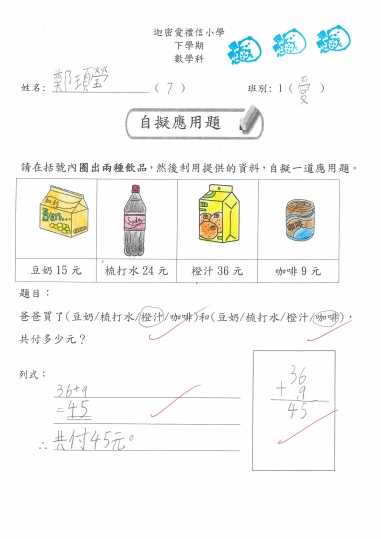 迦密愛禮信小學
下學期
數學科
姓名: 鄭頊瑩 ( 7 ) 班別: 1 ( 愛 )
自擬應用題
請在括號內圈出兩種飲品，然後利用提供的資料，自擬一道應用題。
Soda
豆奶 15 元 梳打水 24 元 橙汁 36 元 咖啡 9 元
題目：
爸爸買了(豆奶/梳打水/橙汁/咖啡)和(豆奶/梳打水/橙汁/咖啡)，
共付多少元？
列式：
36+9
=45
∴ 共付45元。
36
+ 9
45